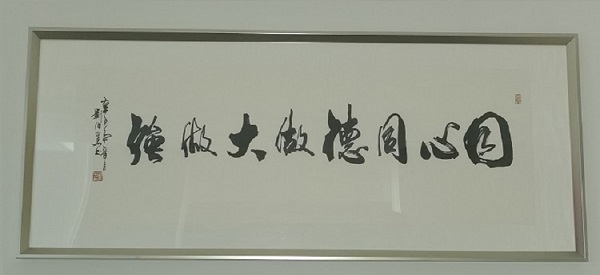 同心同德做大做強